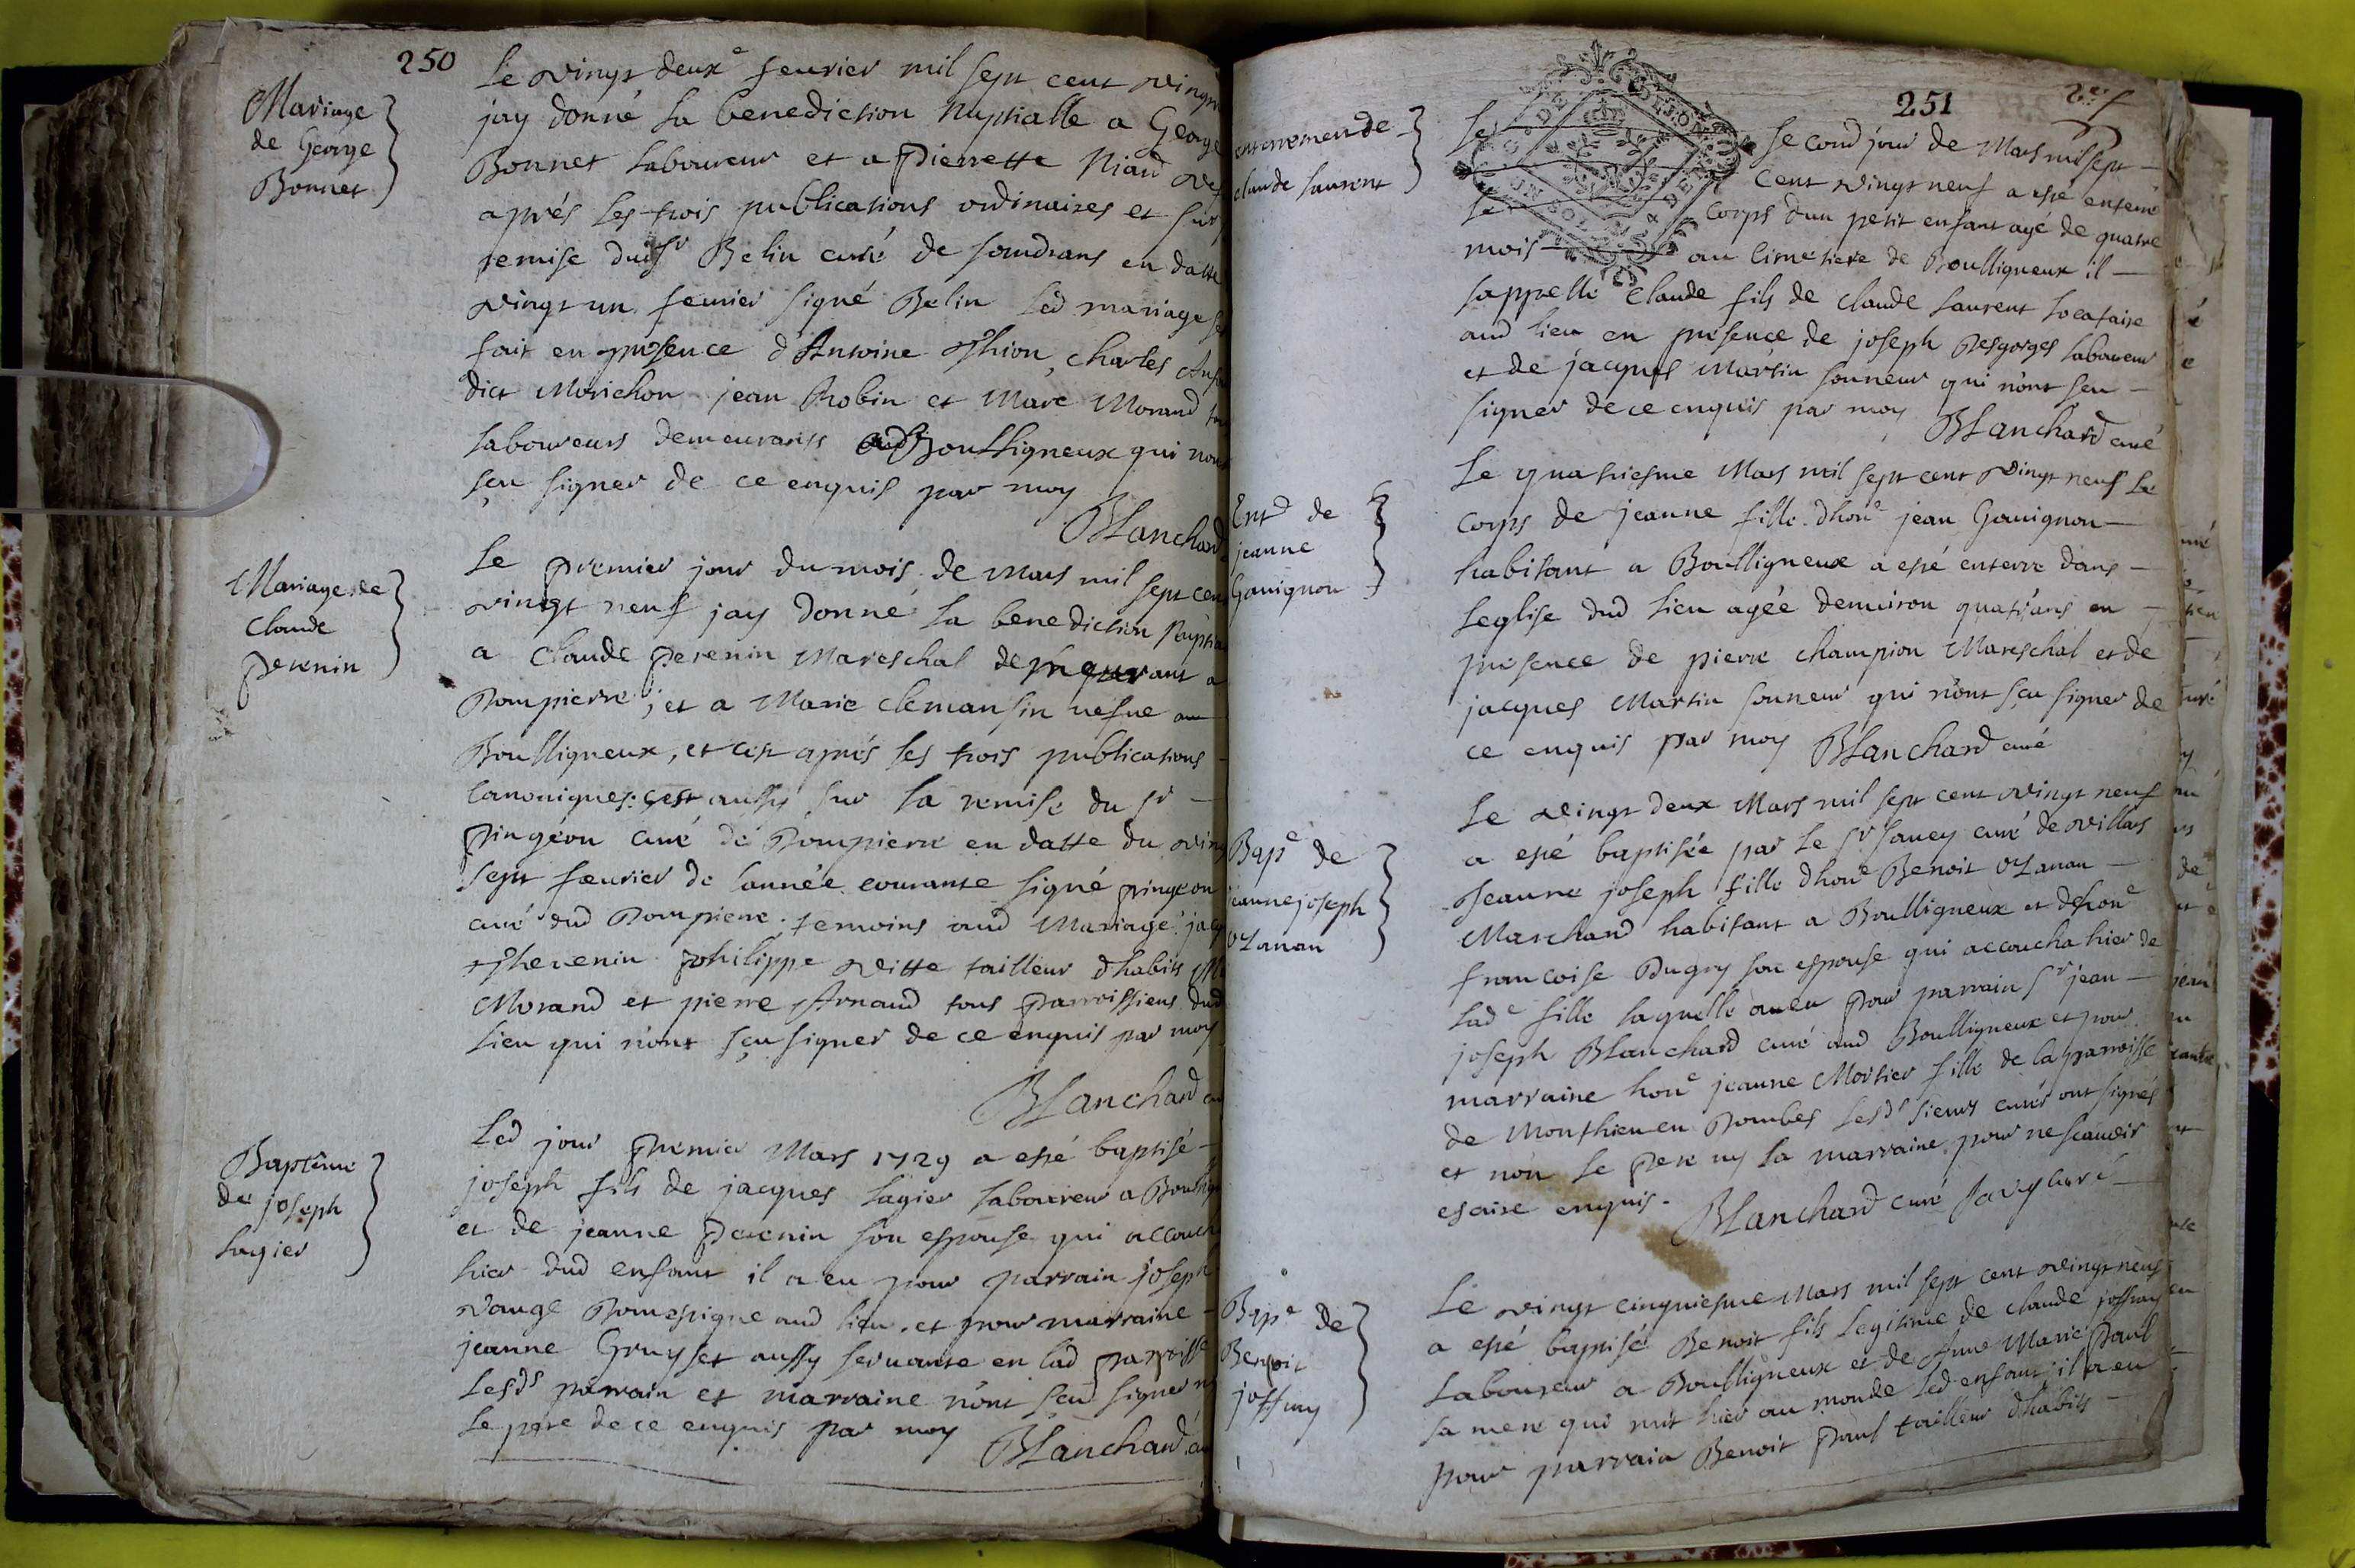 250
Mariage
de George
Bonnet
Le vingt deuxe feurier mil sept cent vingt
jay donné la benediction Nuptialle a George
Bonnet laboureur et a Pierrette Niand
aprés les trois publications ordinaires et sur
remise dud Sr Belin curé de Sandrans en datte
vingt un feurier signé Belin Led mariage
fait en presence d'Antoine Thion, Charles
dict Morichon jean Robin et Marc Morand
laboureurs demeurants aud Boulligneux qui nont
sçu signer de ce enquis par moy
Blanchard
Mariage de
Claude
perenin
Le premier jour du mois de Mars mil sept cent
vingt neuf jay donné la benediction
a Claude Perenin Mareschal demeurant a
Dompierre, et a Marie Clemansin uefue au
Boulligneux, et cest aprés les trois publications
Canoniques: cest aussy sur la remise du Sr
Pingéon curé de Dompierre en datte du
sept feurier de lannée courante signé pingeon
curé dud Dompierre. temoins aud Mariage
Thevenin philippe Vitte tailleur dhabits
Morand et pierre Arnaud tous Parroissiens dud
lieu qui n'ont sçu signer de ce enquis par moy
Blanchard
Baptême
de joseph
lagier
Led jour premier Mars 1729 a esté baptisé
joseph fils de jacques lagier laboureur a
et de jeanne Perenin son espouse qui
hier dud enfant il a eu pour parrain joseph
Vauge Domestique aud lieu. et pour marraine
jeanne Gruyset aussy servante en lad parroisse
Lesds parrain et marraine n'ont seu signer ny
le pere de ce enquis par moy Blanchard
251
enterremen de
claude laurent
Le second jour de Mars mil sept
Cent vingt neuf a esté enterré
Le corps dun petit enfant agé de quatre
mois au Cimetiere de Boulligneux il
sappelle Claude fils de claude laurent locataire
aud lieu en presence de joseph Desgorges laboureur
et de jacques Martin sonneur qui n'ont seu
signer de ce enquis par moy Blanchard curé
Entd de
jeanne
Gauignon
Le quatriesme Mars mil sept cent vingt neuf le
corps de jeanne fille dhone jean Gauignon
habitant a Boulligneux a esté enterré dans
leglise dud lieu agée denuiron quatr'ans en
presence de pierre champion Mareschal et de
jacques Martin sonneur qui n'ont sçu signer de
ce enquis par moy Blanchard curé
Bape de
jeanne joseph
Ozanan
Le vingt deux Mars mil sept cent vingt neuf
a esté baptisée par le Sr Sauey curé de Villars
Jeanne joseph fille dhone Benoit Ozanan
Marchand habitant a Boulligneux et dehone
francoise Dugry son espouse qui accoucha hier de
lade fille laquelle a eu pour parrain Sr jean
joseph Blanchard curé aud Boulligneux et pour
marraine hone jeanne Mortier fille de la parroisse
de Monthieu en Dombes lesds sieurs curés ont signés
et non le pere ny la marraine pour ne scauoir
escrire enquis. Blanchard curé Savey curé
Bape de
Benoit
joffray
Le vingt cinquiesme Mars mil sept cent vingt neuf
a esté baptisé Benoit fils legitime de claude joffray
Laboureur a Boulligneux et de Anne Marie Paul
sa mere qui mit hier au monde led enfant; il a eu
pour parrain Benoit paul tailleur dhabits